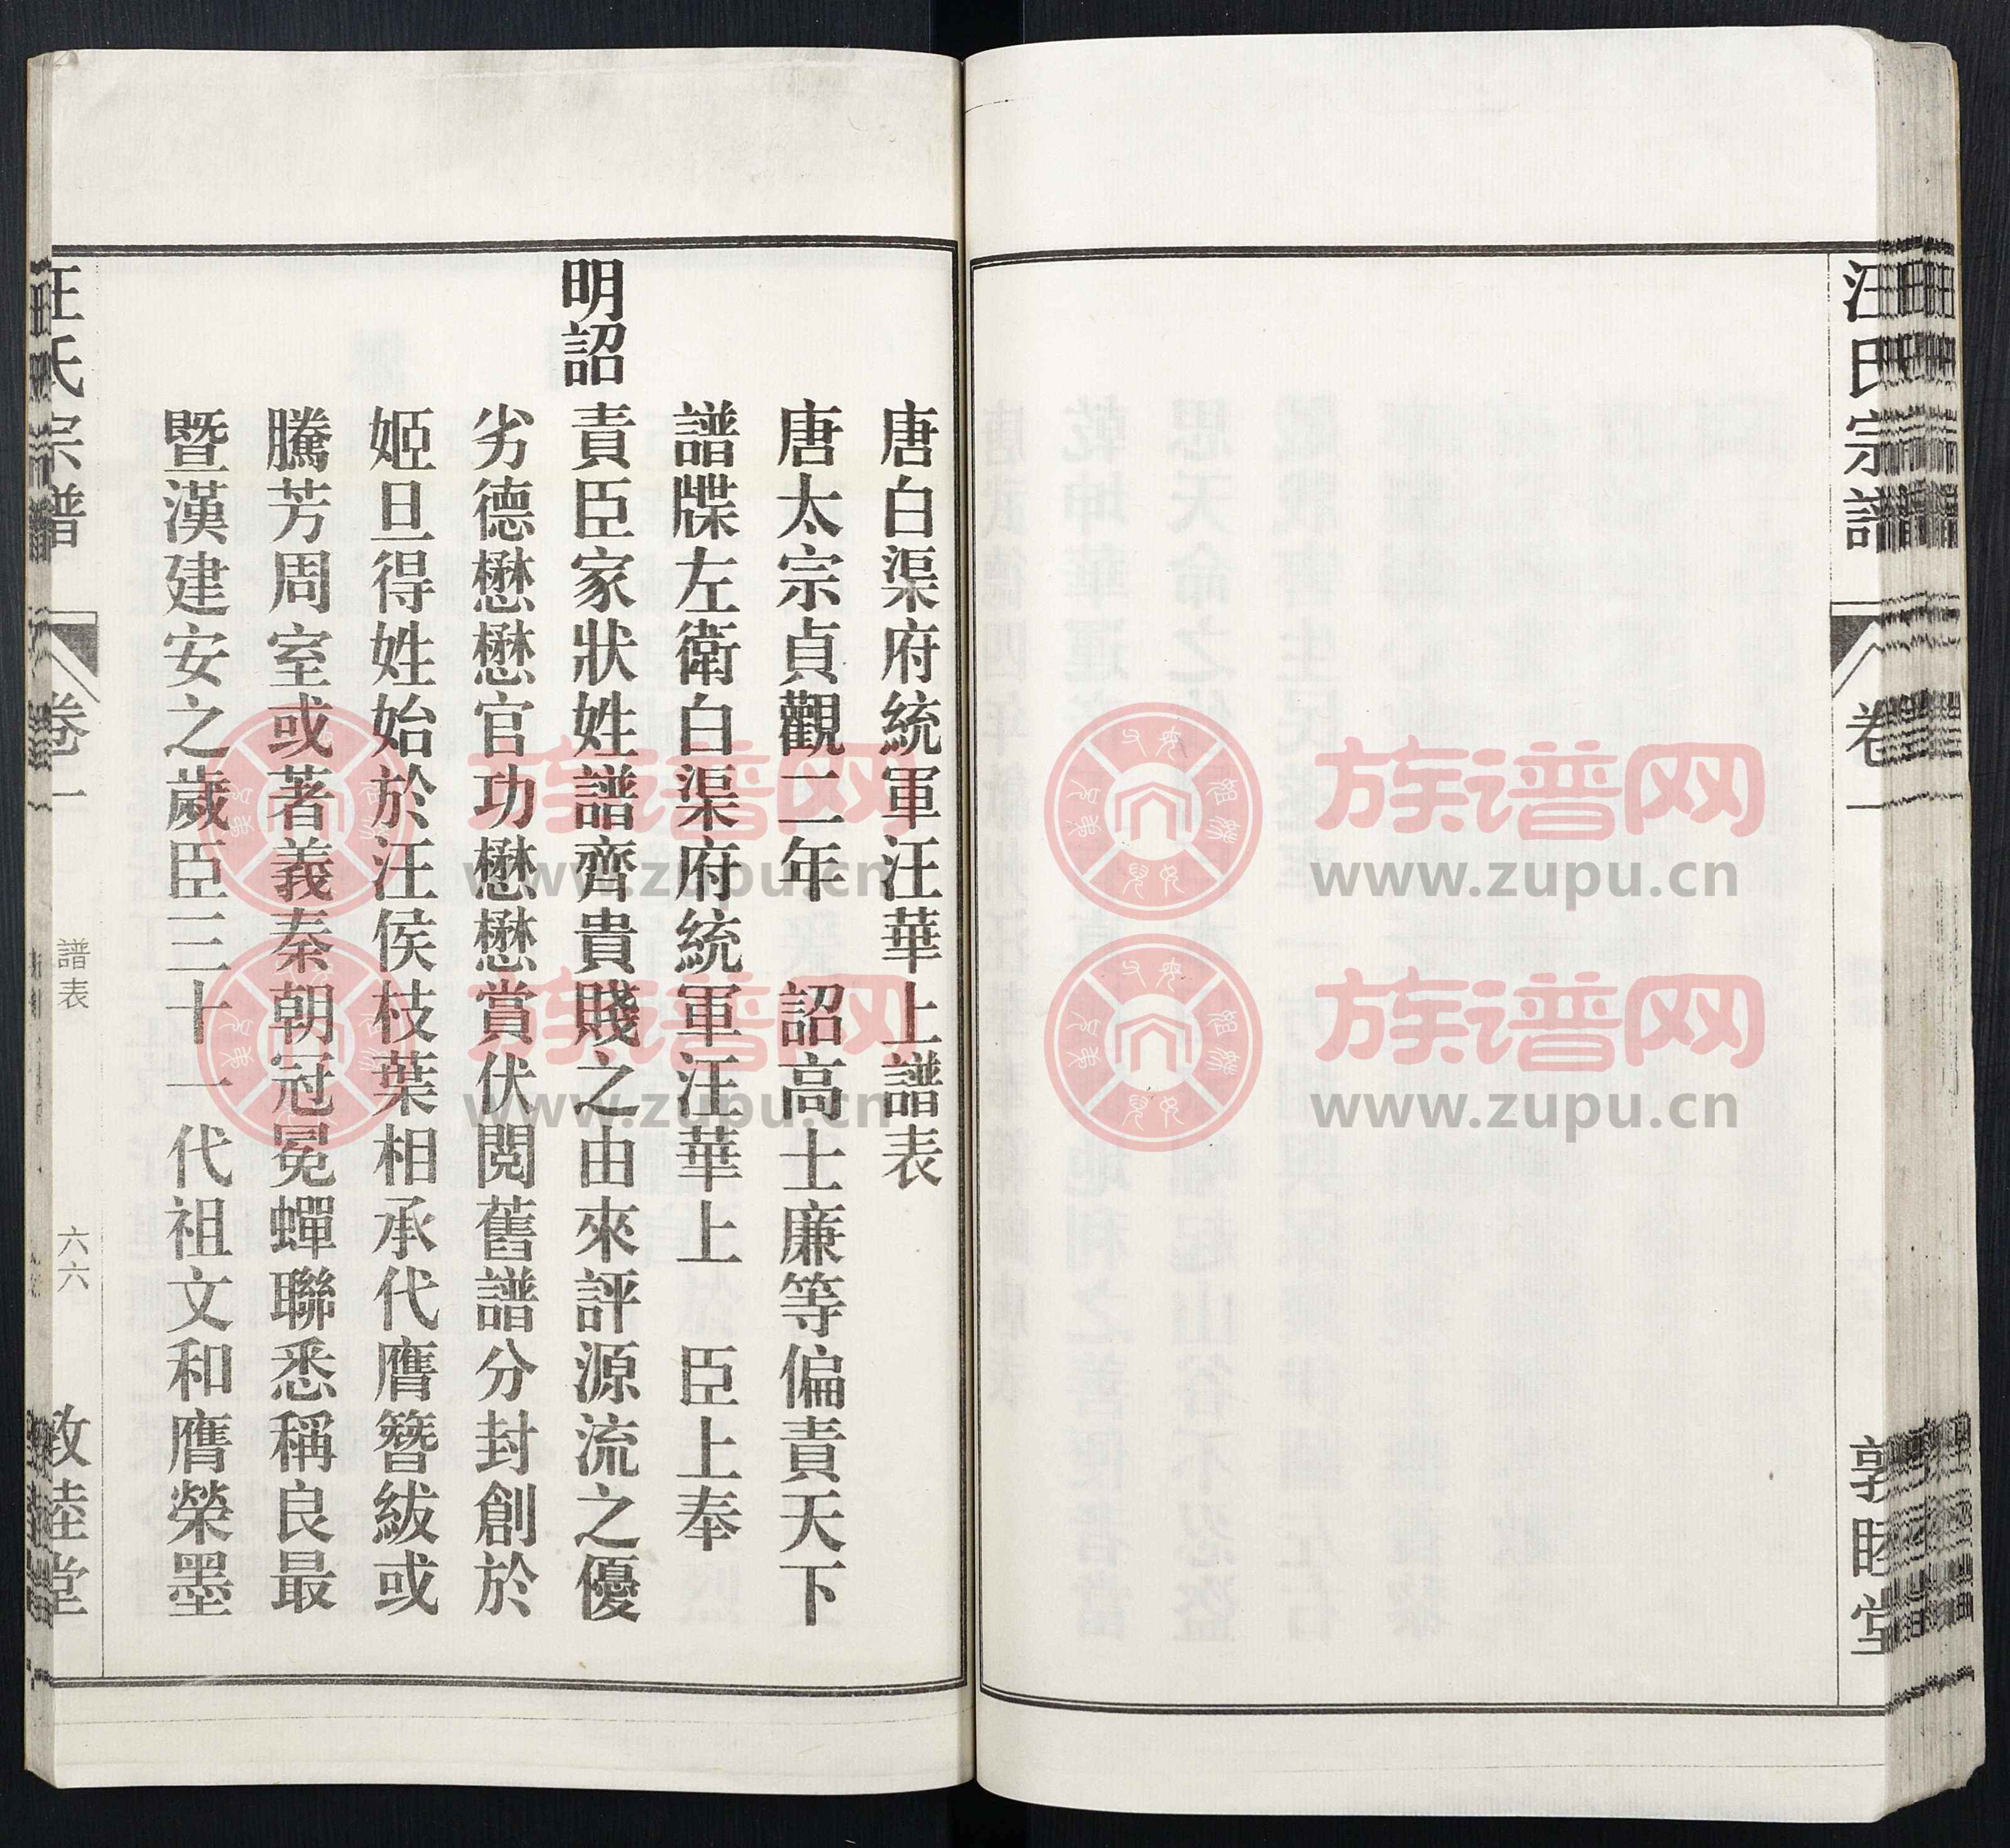 汪氏宗譜
卷一
敦睦堂
唐白渠府統軍汪華上譜表
唐太宗貞觀二年　詔高士廉等偏責天下
譜牒左衛白渠府統軍汪華上　臣上奉
明詔責臣家狀姓譜齊貴賤之由來評源流之優
劣德懋懋官功懋懋賞伏閱舊譜分封創於
姬旦得姓始於汪侯枝葉相承代膺簪紱或
騰芳周室或著義秦朝冠冕蟬聯悉稱良最
暨漢建安之歲臣三十一代祖文和膺榮墨
汪氏宗譜
卷一
譜表
六六
敦睦堂
族谱网
www.zupu.cn
族谱网
www.zupu.cn
族谱网
www.zupu.cn
族谱网
www.zupu.cn